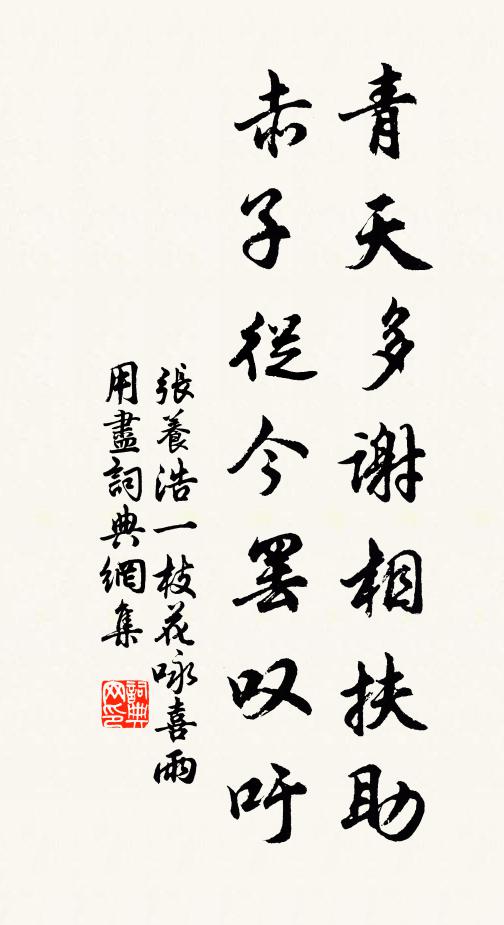 青天多謝相扶助
赤子從今罢叹吁
張養浩一枝花咏喜雨
用盡詞典網集
詞典网印